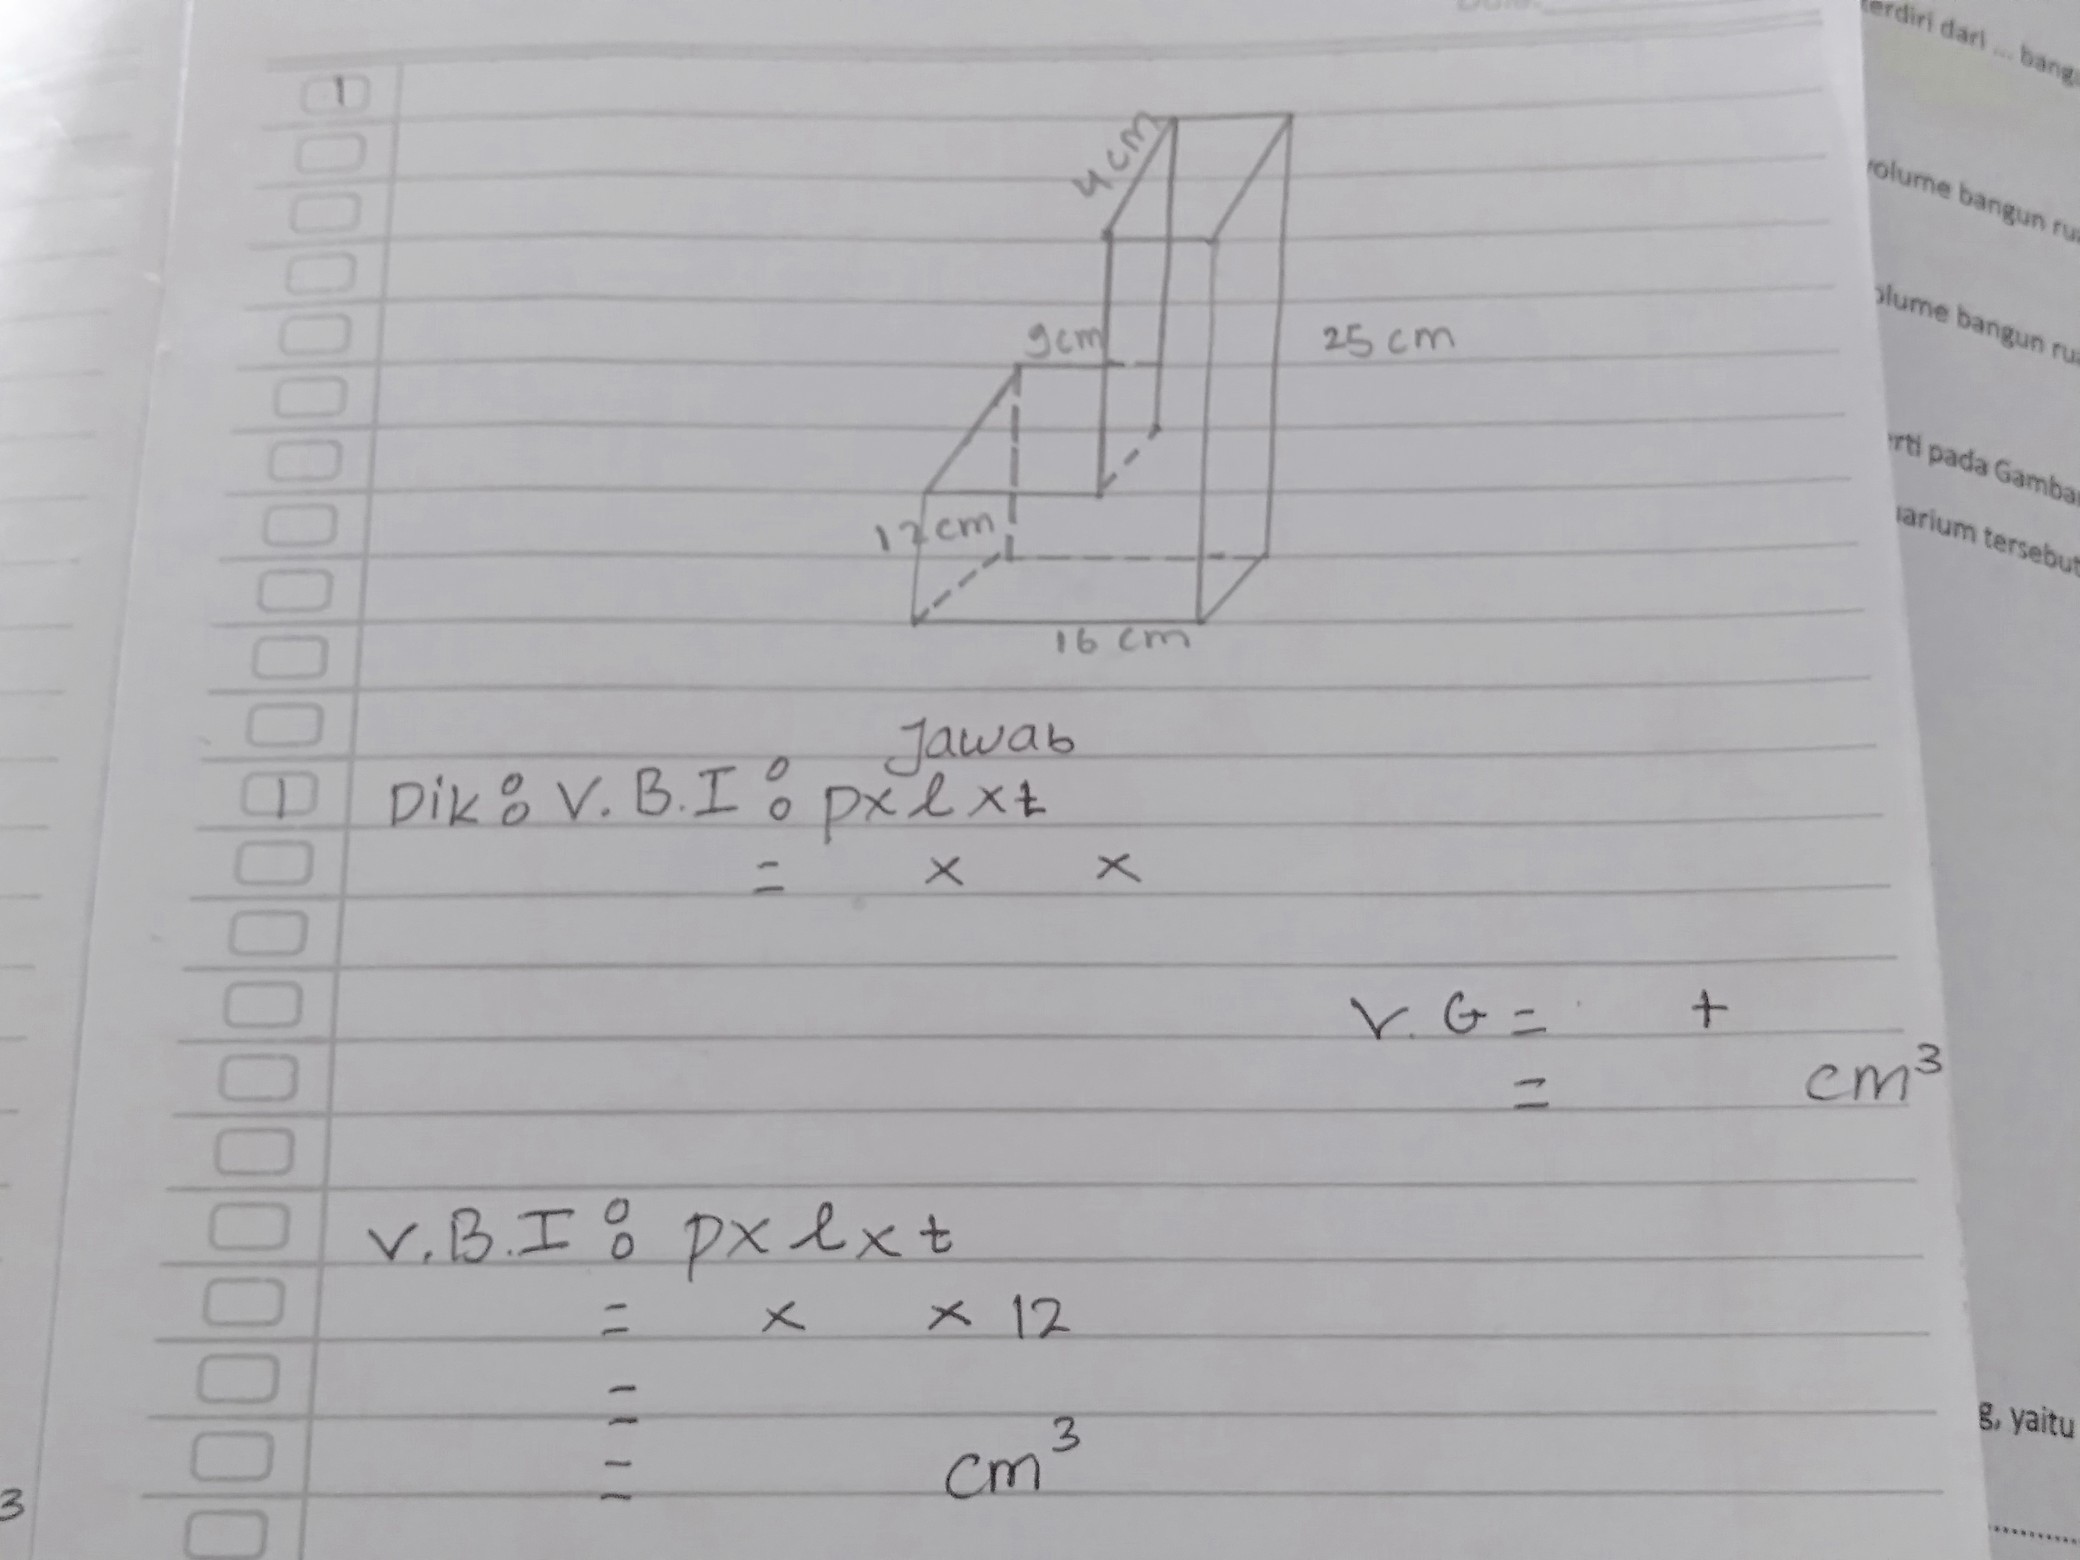 1
4 cm
9cm
25 cm
12cm
16 cm
Jawab
1 Dik : V. B. I : p x l x t
= x x
V. G = +
= cm³
V. B. I : p x l x t
= x x 12
=
= cm³
3
terdiri dari ... bang
volume bangun rua
volume bangun rua
rti pada Gambar
uarium tersebut
g, yaitu